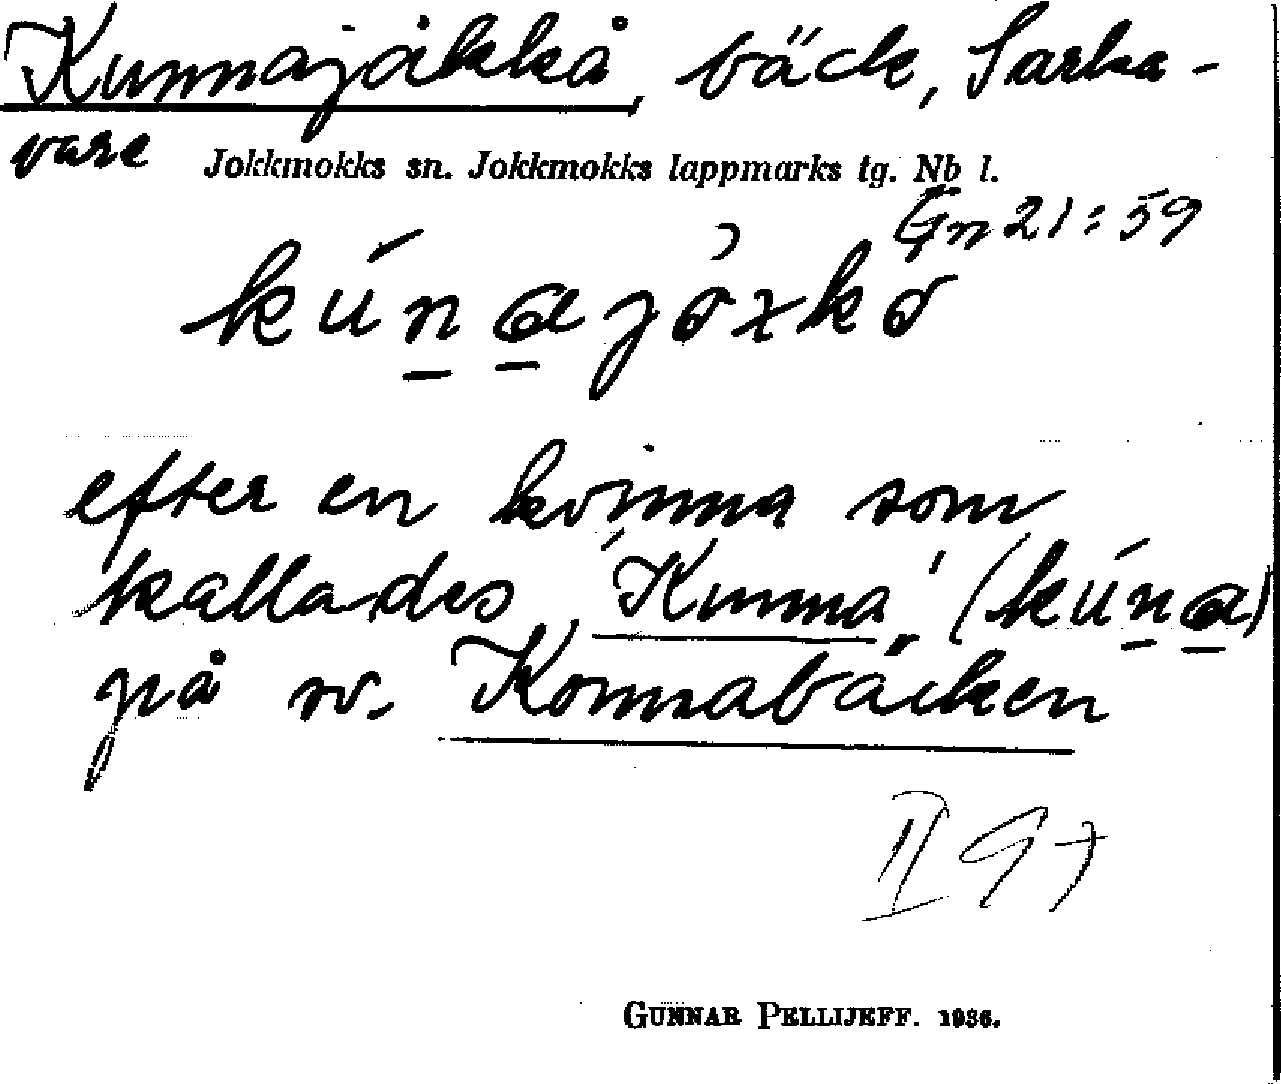 Kunnajåkkå, bäck, Sarka-
vare Jokkmokks sn. Jokkmokks lappmarks tg. Nb l.
Gn 21:59
kúṉa̱jȯχkȯ
efter en kvinna som
kallades 'Kunna' (kúṉa̱)
på sv. Konnabäcken
II 97
GUNNAR PELLIJEFF. 1936.